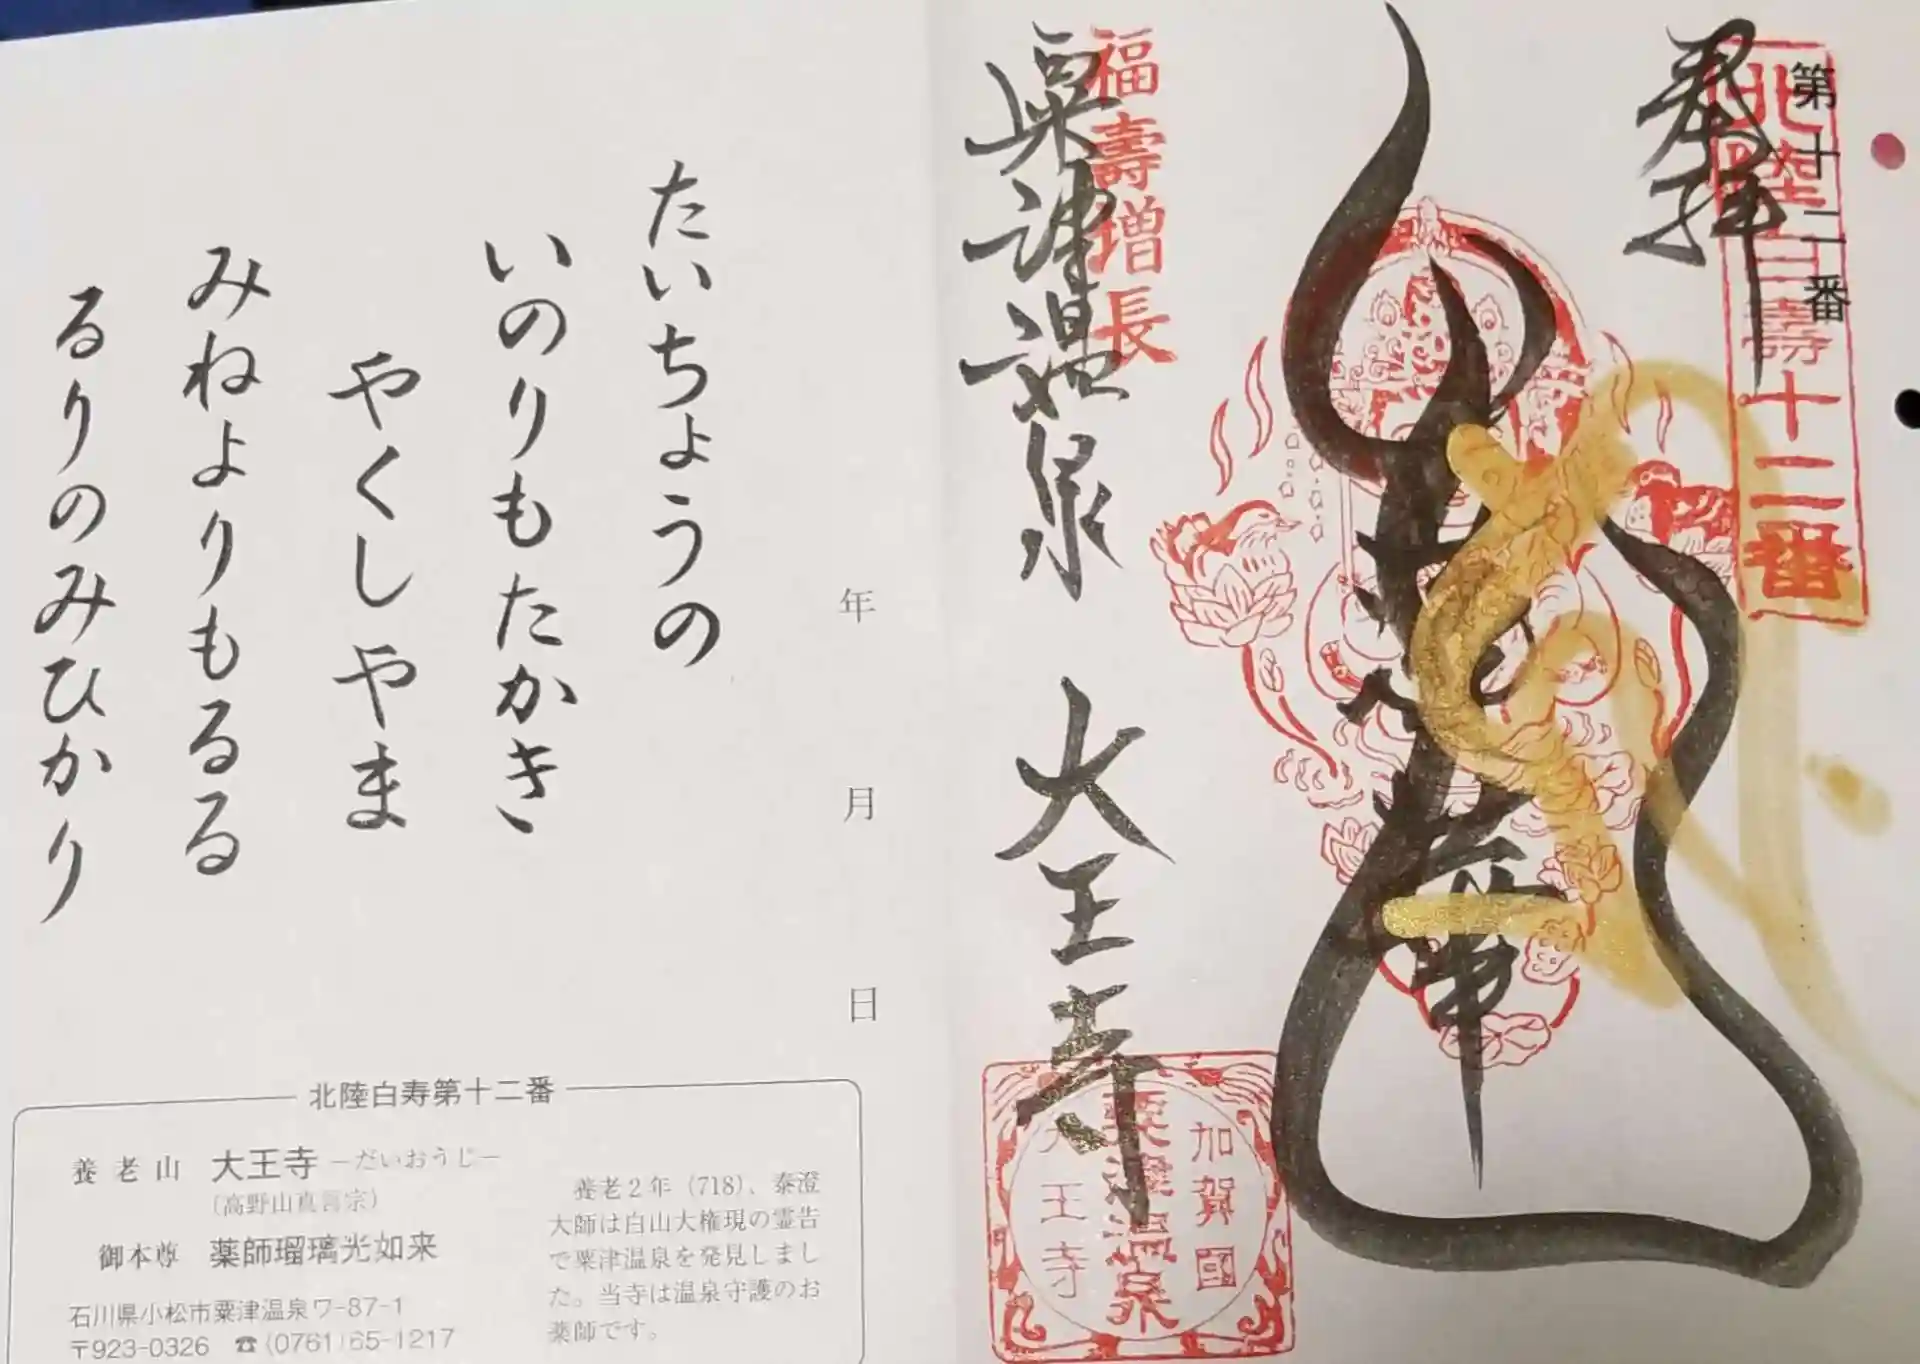 第十二番
奉拝
北陸白壽十二番
福壽増長
粟津温泉 大王寺
加賀國
粟津温泉
大王寺
年 月 日
たいちょうの
いのりもたかき
やくしやま
みねよりもるる
るりのみひかり
北陸白寿第十二番
養老山 大王寺 −だいおうじ−
(高野山真言宗)
御本尊 薬師瑠璃光如来
石川県小松市粟津温泉ワ-87-1
〒923-0326 ☎(0761)65-1217
養老2年(718)、泰澄
大師は白山大権現の霊告
で粟津温泉を発見しまし
た。当寺は温泉守護のお
薬師です。